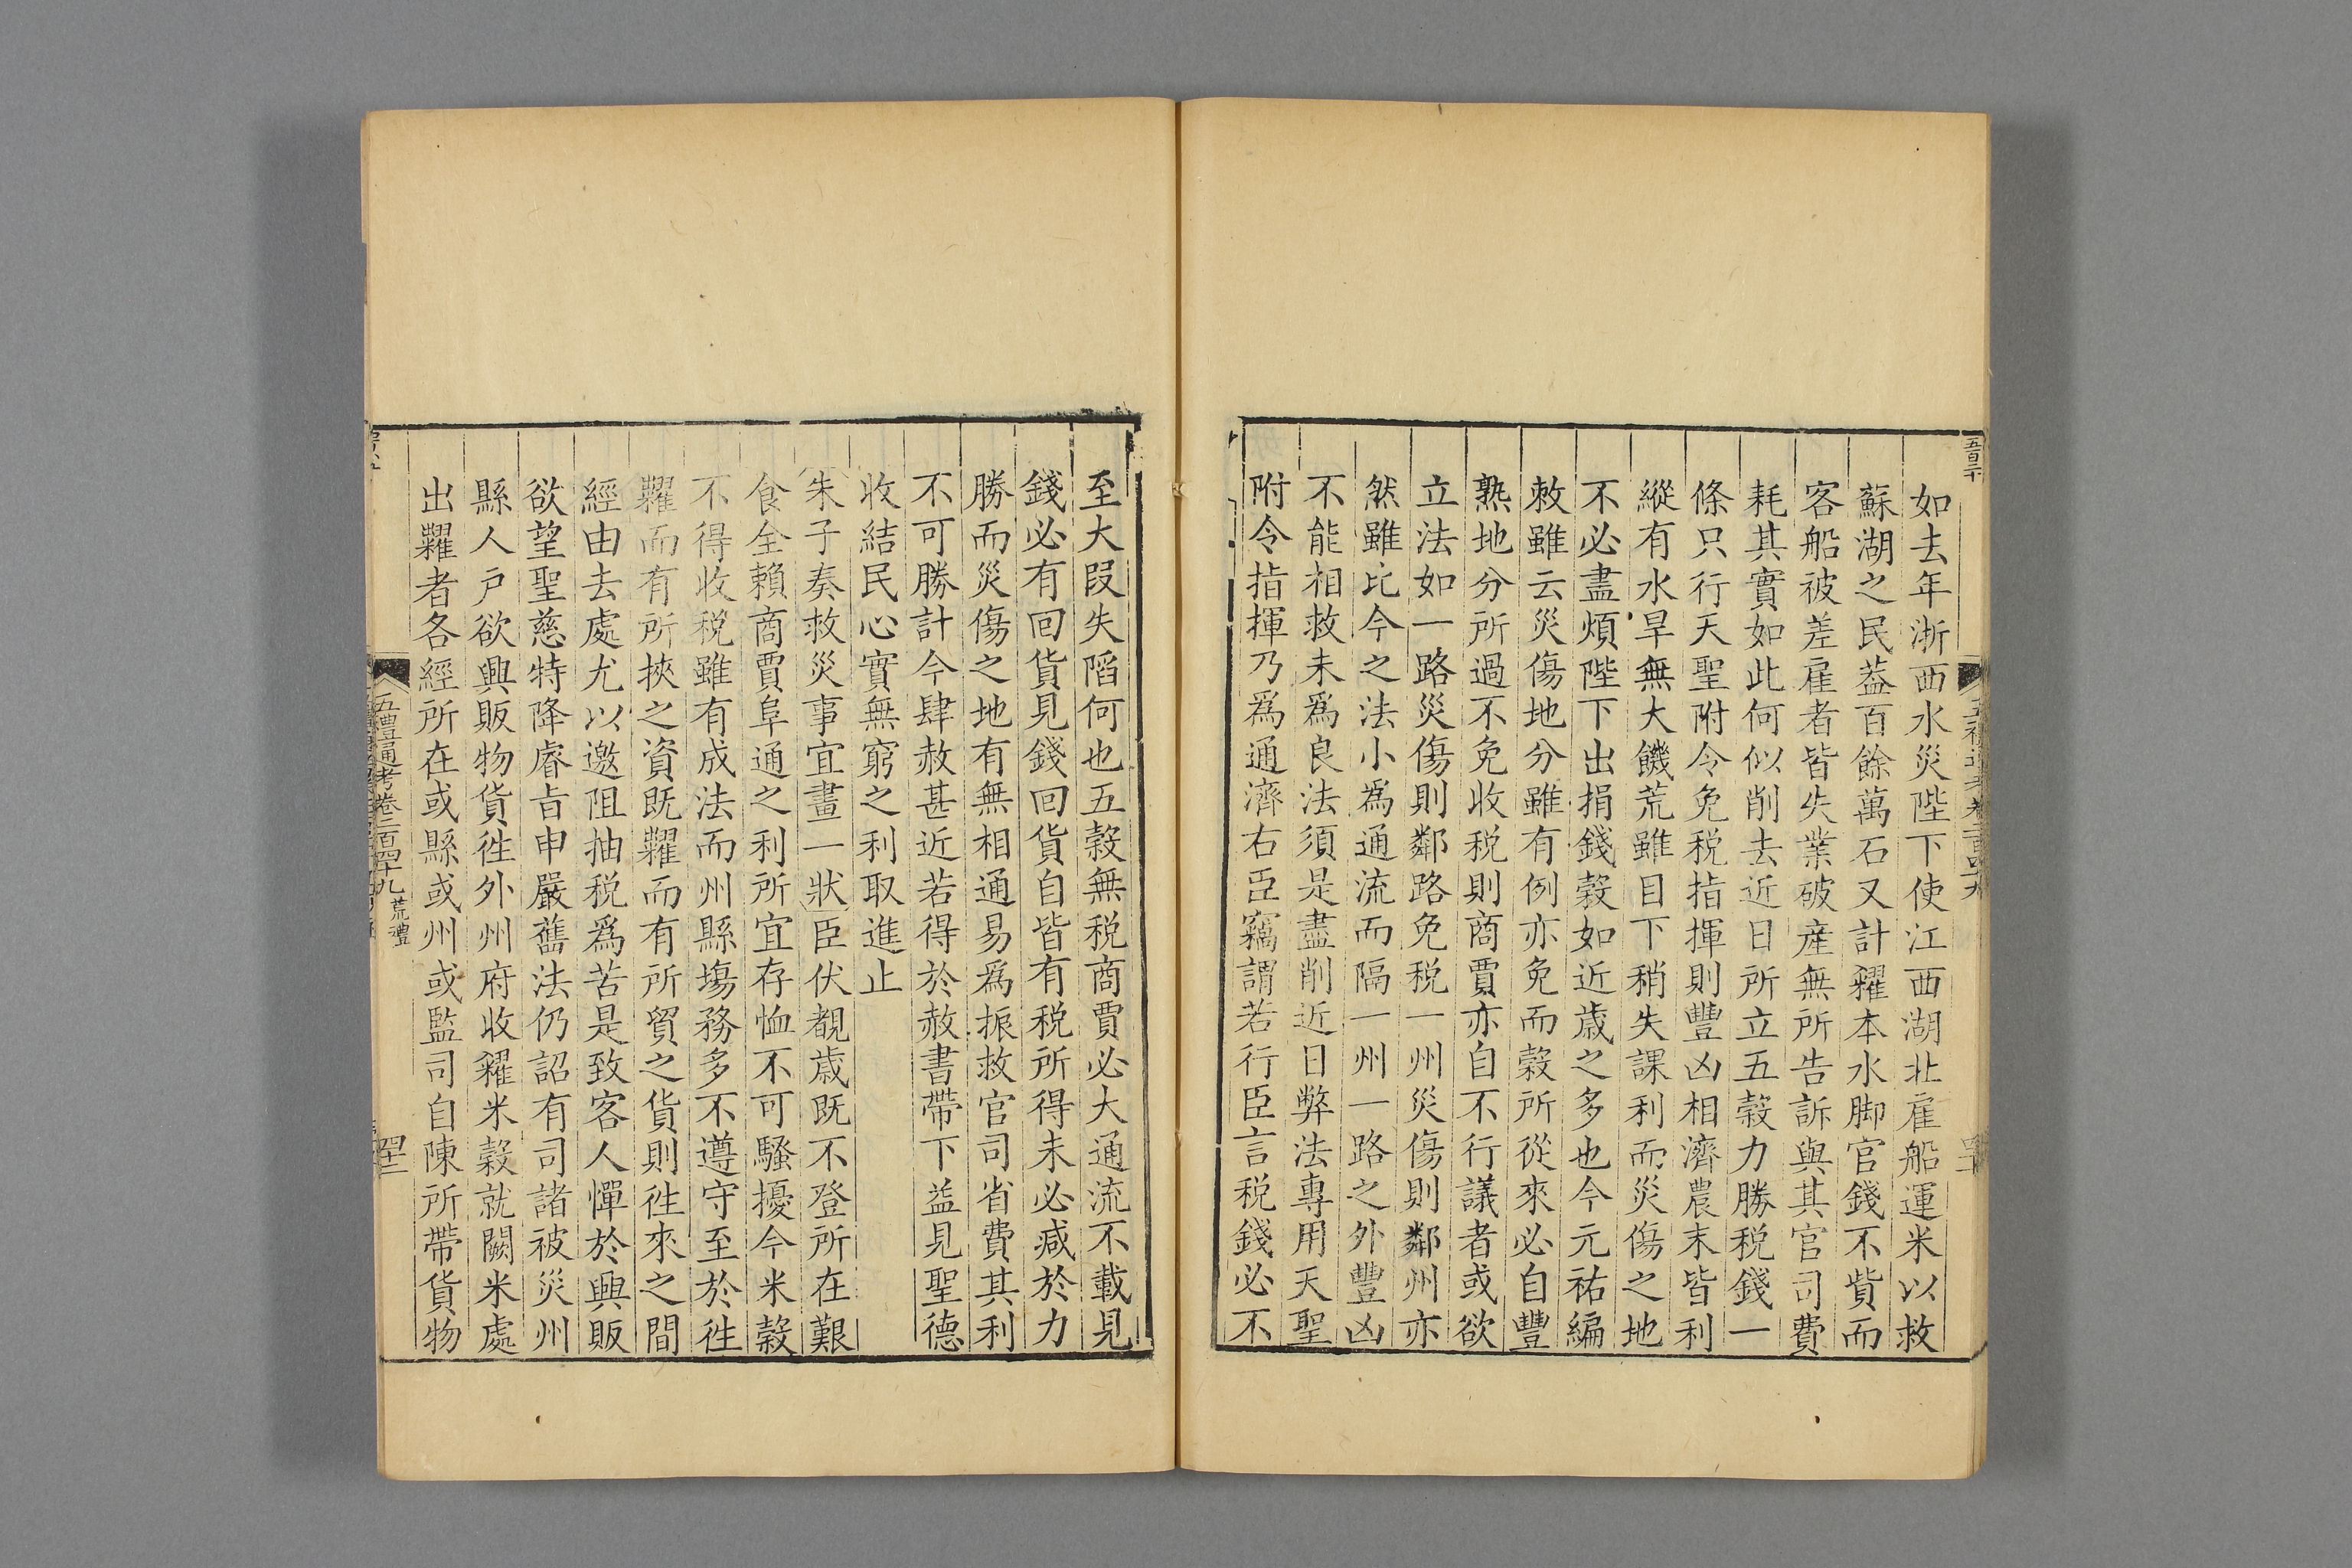 如去年浙西水災陛下使江西湖北雇船運米以救
蘇湖之民葢百餘萬石又計糴本水脚官錢不貲而
客船被差雇者皆失業破產無所告訴與其官司費
耗其實如此何似削去近日所立五榖力勝税錢一
條只行天聖附令免税指揮則豐凶相濟農末皆利
縱有水旱無大饑荒雖目下稍失課利而災傷之地
不必盡煩陛下出捐錢榖如近歲之多也今元祐編
敕雖云災傷地分雖有例亦免而榖所從來必自豐
熟地分所過不免收税則商賈亦自不行議者或欲
立法如一路災傷則鄰路免税一州災傷則鄰州亦
然雖比今之法小為通流而隔一州一路之外豐凶
不能相救未爲良法須是盡削近日弊法專用天聖
附令指揮乃爲通濟右臣竊謂若行臣言税錢必不
至大叚失陷何也五榖無税商賈必大通流不載見
錢必有回貨見錢回貨自皆有税所得未必减於力
勝而災傷之地有無相通易爲振救官司省費其利
不可勝計今肆赦甚近若得於赦書帶下益見聖德
收結民心實無窮之利取進止
朱子奏救災事宜畫一狀臣伏覩歲既不登所在艱
食全賴商賈阜通之利所宜存恤不可騷擾今米榖
不得收税雖有成法而州縣塲務多不遵守至於徃
糶而有所挾之資既糶而有所貿之貨則徃來之間
經由去處尤以邀阻抽税爲苦是致客人憚於興販
欲望聖慈特降睿旨申嚴舊法仍詔有司諸被災州
縣人戶欲興販物貨徃外州府收糴米榖就闕米處
出糶者各經所在或縣或州或監司自陳所帶貨物
五禮通考卷二百四十九 荒禮